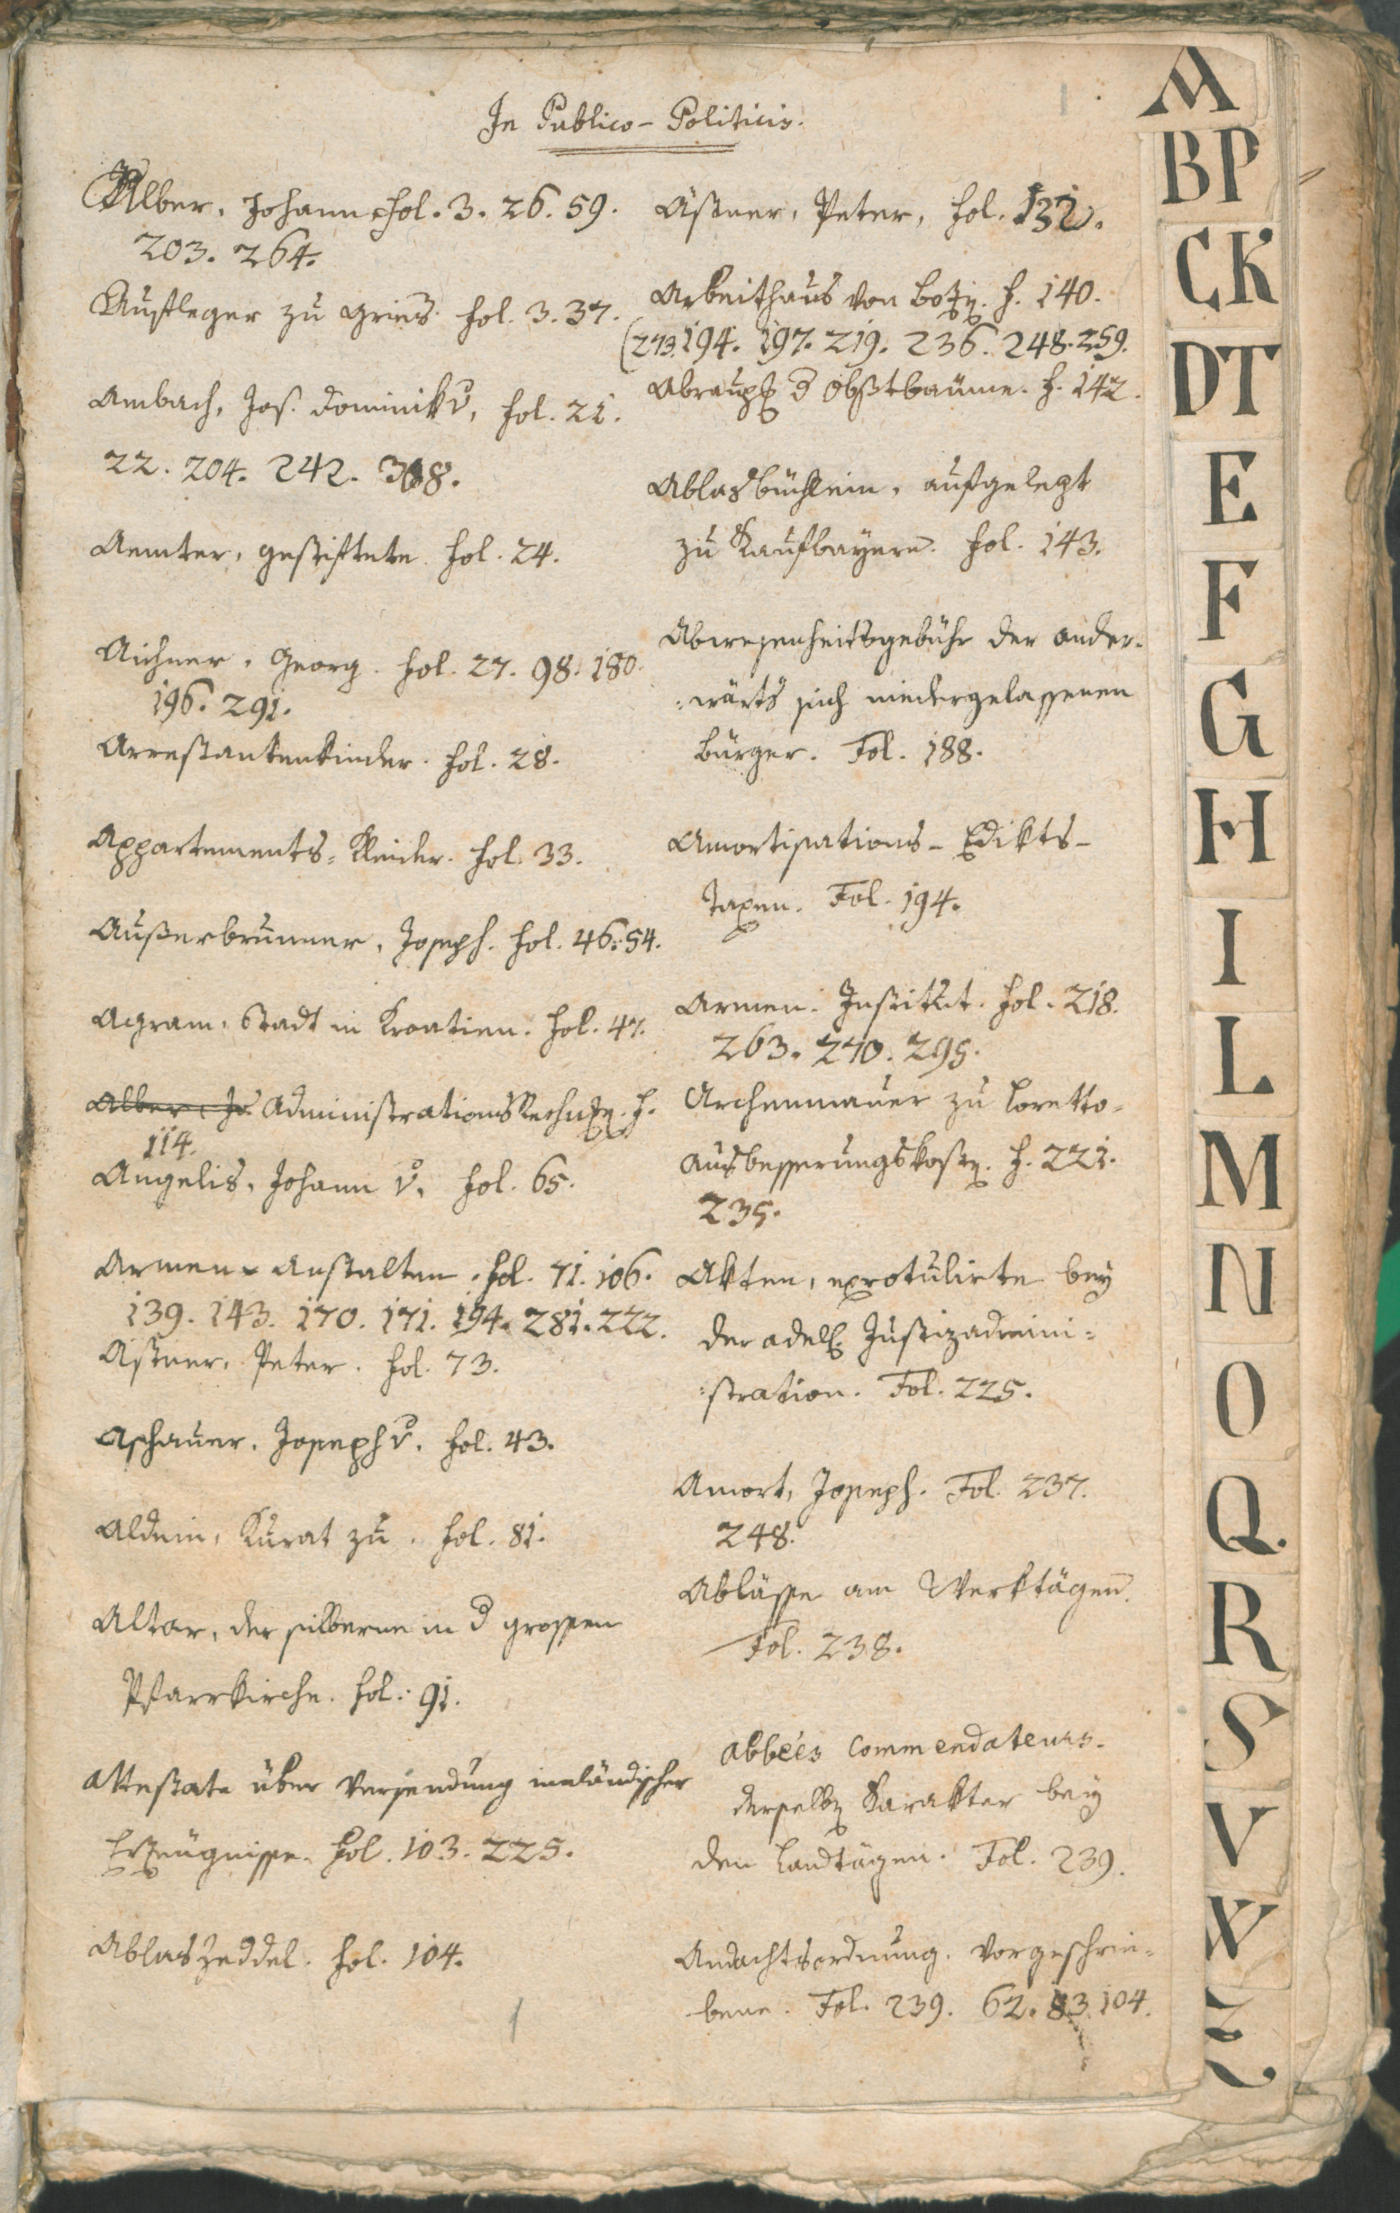 In Publico-Politicis.
Alber, Johann, fol. 3. 26. 59.
203. 264.
Ausleger zu Gries. fol. 3. 37.
Ambach, Jos. Dominik v, fol. 21.
22. 204. 242. 308.
Aemter, gestiftete. fol. 24.
Aichner, Georg. fol. 27. 98. 180.
196. 291.
Arrestantenkinder. fol. 28.
Appartements-Kleider. fol. 33.
Außerbrunner, Joseph. fol. 46. 54.
Agram, Stadt in Kroatien. fol. 47.
Alber, Jo. Administrations f.
114.
Angelis, Johann v, fol. 65.
Armen-Anstalten. fol. 71. 106.
139. 143. 170. 171. 194. 281. 222.
Aßner, Peter. fol. 73.
Aschauer, Joseph v. fol. 43.
Aldein, Kurat zu. fol. 81.
Altar, der silberne in d grossen
Pfarrkirche. fol: 91.
Attestate über Versendung inländischer
Erzeugnisse. fol. 103. 225.
Ablaszeddel. fol. 104.
Aßner, Peter, fol. 132.
Arbeithaus von Botzen. f. 140.
(273. 194. 197. 219. 236. 248. 259.
d Obstbäume. f. 142.
Ablasbüchlein, aufgelegt
zu Kaufbayern. fol. 143.
Abwesenheitsgebühr der ander-
:wärts sich niedergelassenen
Bürger. Fol. 188.
Amortisations-Edikts-
Taxen. Fol. 194.
Armen-Institut. fol. 218.
263. 270. 295.
Archenmauer zu Loretto-
Ausbesserungskosten. f. 221.
235.
Akten, exrotulirte bey
der adel. Justizadmini-
:stration. Fol. 225.
Amort, Joseph. Fol. 237.
248.
Ablässe am Werktägen.
Fol. 238.
abbées Commendateurs.
derselben Karakter bey
den Landtägen. Fol. 239.
Andachtsordnung. vorgeschrie-
bene. Fol. 239. 62. 83. 104.
A
BP
CK
DT
E
F
G
H
I
L
M
N
O
Q.
R
S
V
W
Z